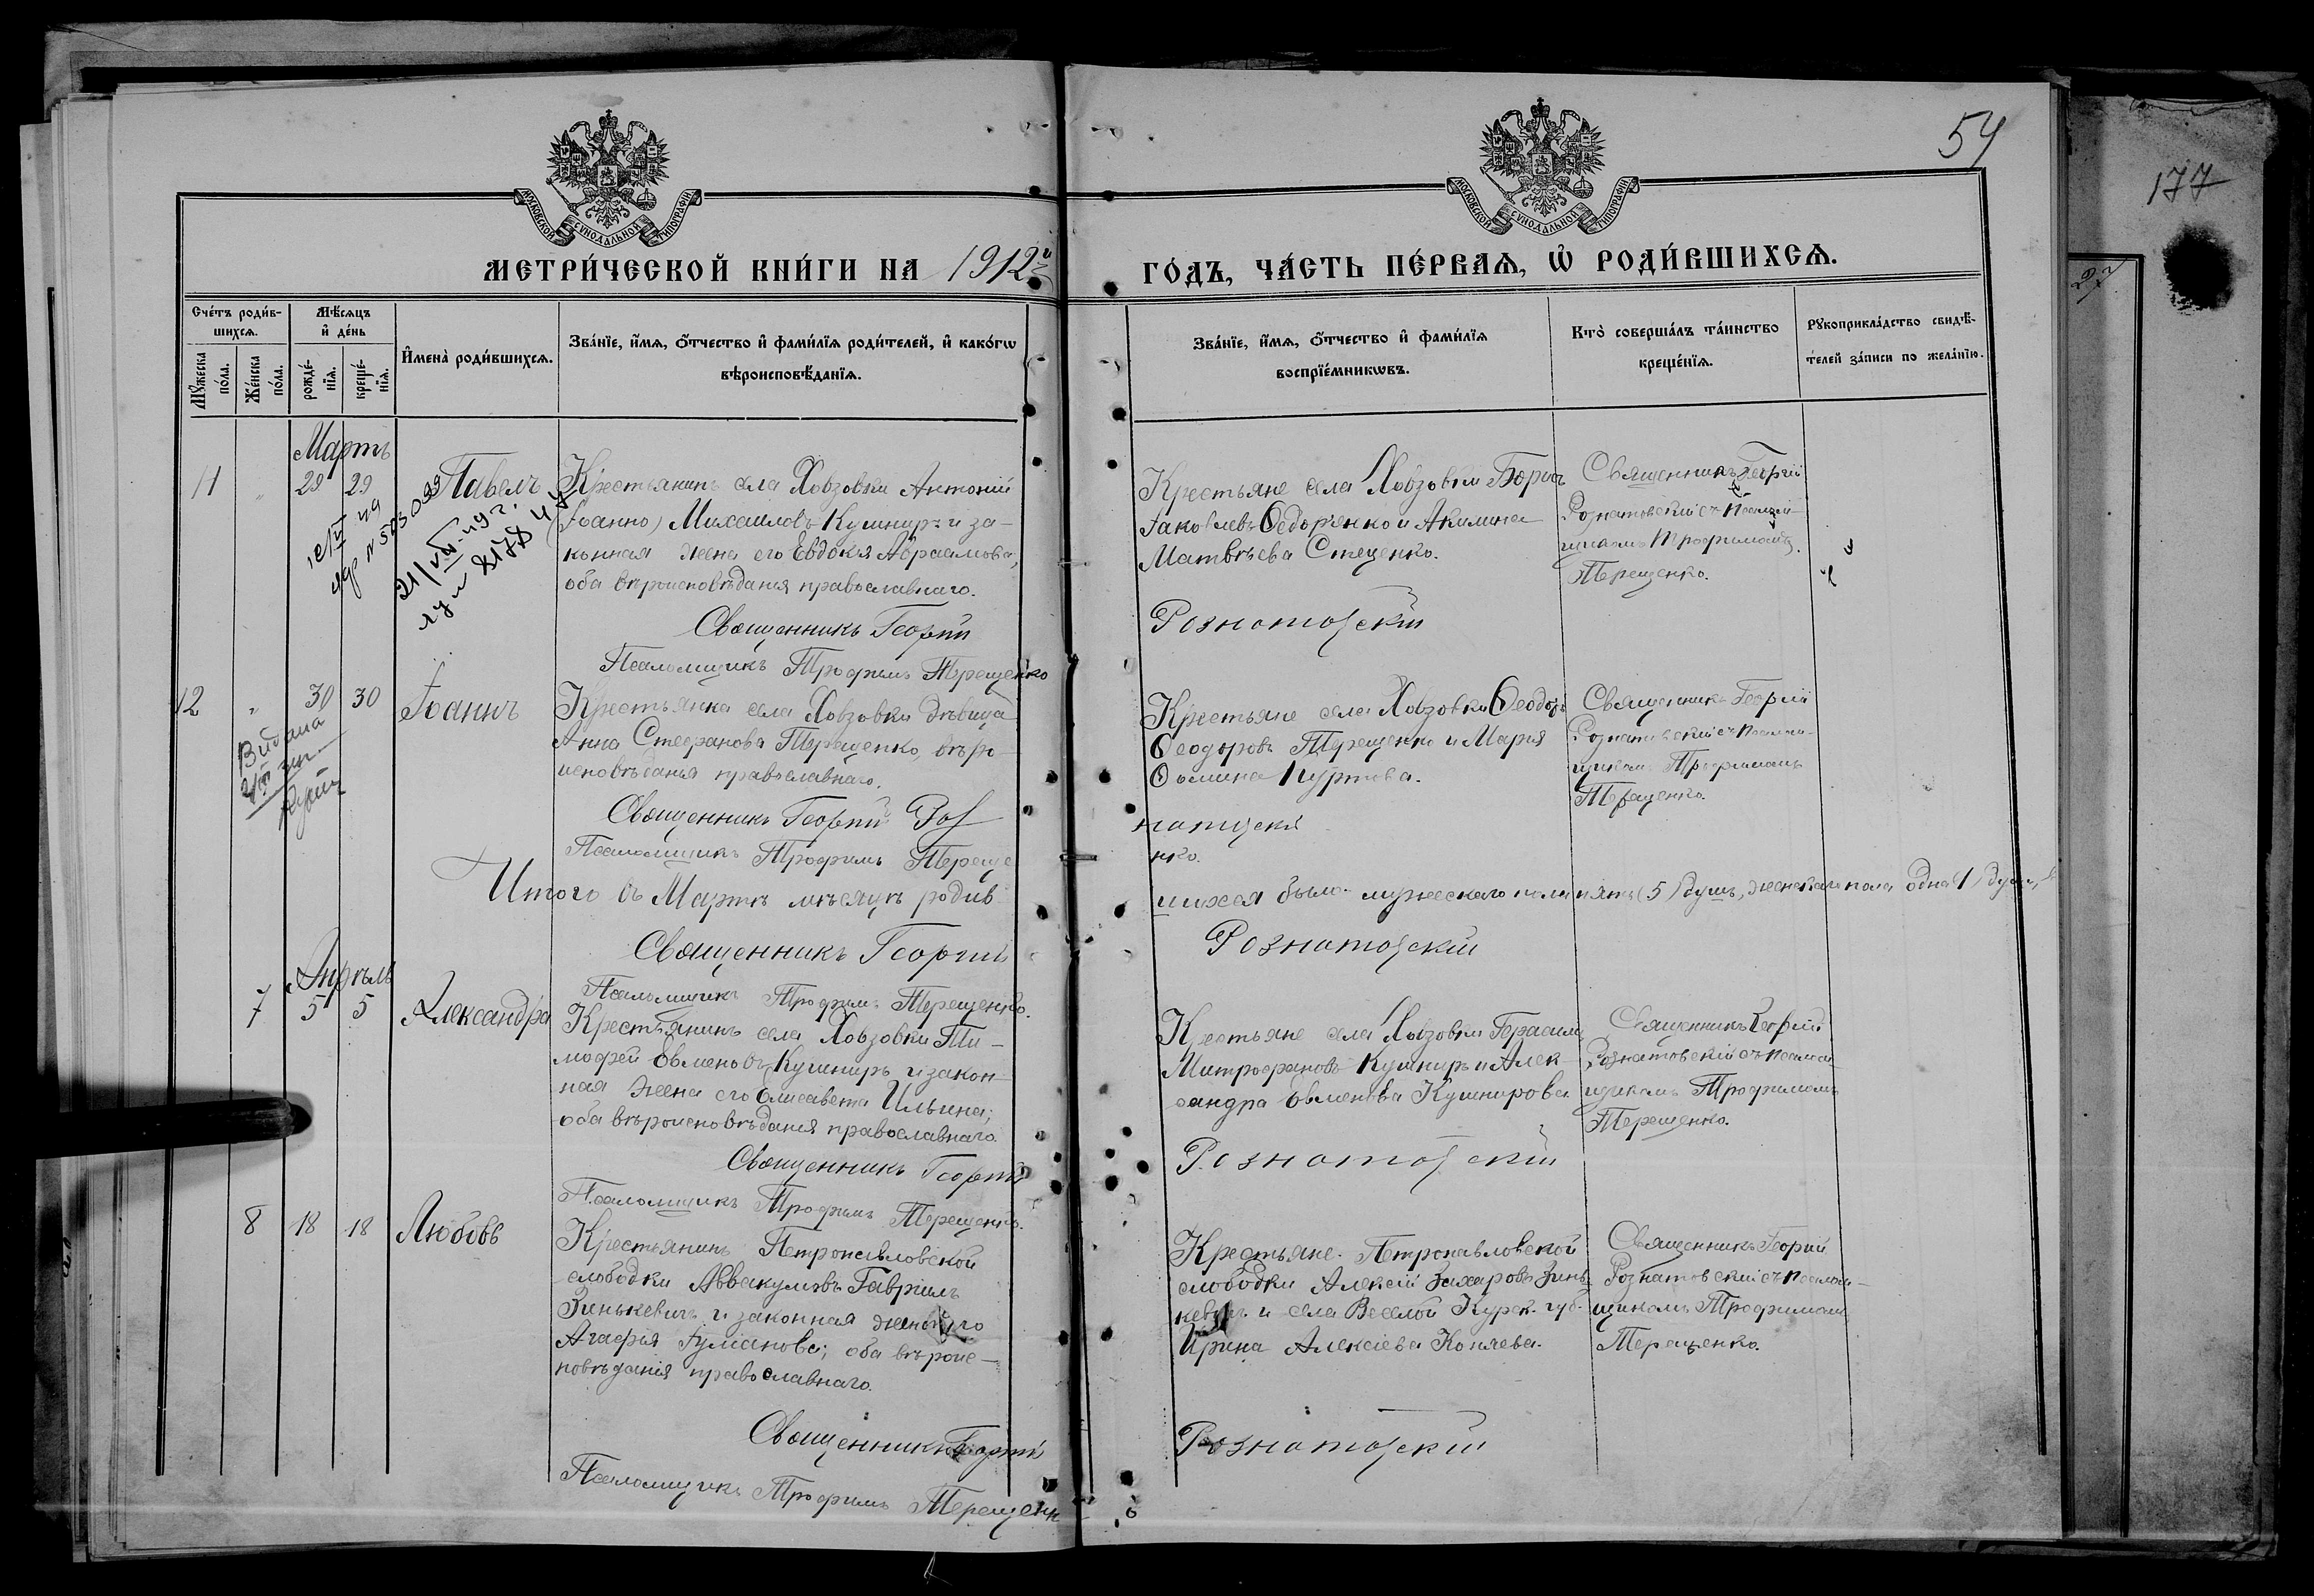 54
177
27
МОСКОВСКОЙ СѴНОДАЛЬНОЙ ТИПОГРАФІИ
МОСКОВСКОЙ СѴНОДАЛЬНОЙ ТИПОГРАФІИ
МЕТРИ́ЧЕСКОЙ КНИ́ГИ НА 1912й
ГО́ДЪ, ЧА́СТЬ ПЕ́РВАѦ, Ѡ҆ РОДИ́ВШИХСѦ.
Сче́тъ роди́в-
шихсѧ.
Мꙋ́жеска
по́ла.
Же́нска
по́ла.
Мѣ́сѧцъ
и҆ де́нь
рожде́-
нїѧ.
креще́-
нїѧ.
И҆мена̀ роди́вшихсѧ.
Зва́нїе, и҆́мѧ, ѻ҆́тчество и҆ фами́лїѧ роди́телей, и҆ како́гѡ
вѣроисповѣ́данїѧ.
Зва́нїе, и҆́мѧ, ѻ҆́тчество и҆ фами́лїѧ
воспрїе́мникѡвъ.
Кто̀ соверша́лъ та́инство
креще́нїѧ.
Рꙋкоприкла́дство свидѣ́-
телей за́писи по жела́нїю.
Мартъ
11 " 29 29 Павелъ
Крестьянинъ села Ховзовки Антоній
(Іоаннъ) Михаиловъ Кушниръ и за-
конная жена его Евдокія Абраамова,
оба вѣроисповѣданія православнаго.
Священникъ Георгій
Псаломщикъ Трофимъ Терещенко
Крестьяне села Ховзовки Борисъ
Іаковлевъ Ѳедоренко и Акилина
Матвѣева Стеценко.
Рознатовскій
Священникъ Георгій
Рознатовскій съ псалом-
щикомъ Трофимомъ
Терещенко.
21/VIII-49 г.
12 " 30 30 Іоаннъ
Видана
Крестьянка села Ховзовки дѣвица
Анна Стефанова Терещенко, вѣро-
исповѣданія православнаго.
Священникъ Георгій Роз
Псаломщикъ Трофимъ Тереще
Крестьяне села Ховзовки Ѳеодоръ
Ѳеодоровъ Терещенко и Марія
Ѳомина Куртова.
натовскій
нко.
Священникъ Георгій
Рознатовскій съ псалом-
щикомъ Трофимомъ
Терещенко.
Итого въ Мартѣ мѣсяцѣ родив
шихся было мужескаго пола пять (5) душъ, женскаго пола одна (1) душа
Священникъ Георгій
Рознатовскій
Псаломщикъ Трофимъ Терещенко.
Апрѣль
7 5 5 Александра
Крестьянинъ села Ховзовки Ти-
мофей Евменовъ Кушниръ и закон-
ная жена его Елисавета Ильина;
оба вѣроисповѣданія православнаго.
Священникъ Георгій
Псаломщикъ Трофимъ Терещенко.
Крестьяне села Ховзовки Герасимъ
Митрофановъ Кушниръ и Алек-
сандра Евменова Кушнирова
Рознатовскій
Священникъ Георгій
Рознатовскій съ псалом-
щикомъ Трофимомъ
Терещенко.
8 18 18 Любовь
Крестьянинъ Петропавловской
слободки Аввакумовъ Гавріилъ
Зинькевичъ и законная жена его
Агафія; оба вѣроис-
повѣданія православнаго.
Священникъ Георгій
Псаломщикъ Трофимъ Терещенк
Крестьяне Петропавловской
слободки Алексій Захаровъ Зинь-
кевичъ и села Веселой Курск. губ.
Ирина Алексіева Коняева.
Рознатовскій
Священникъ Георгій
Рознатовскій съ псалом-
щикомъ Трофимомъ
Терещенко.